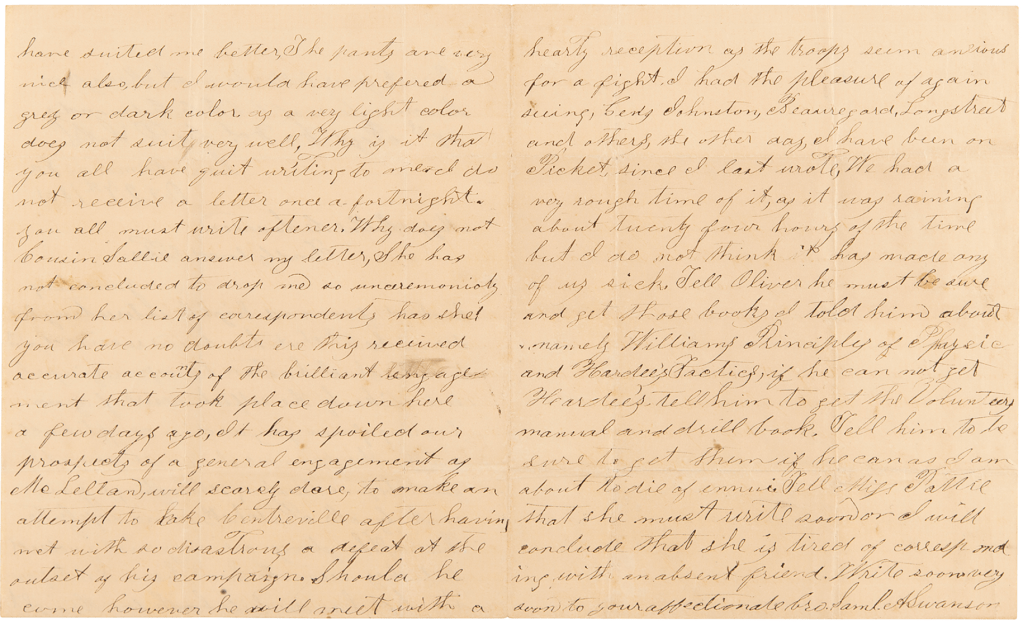 have suited me better, The pants are very
nice also, but I would have prefered a
grey or dark color as a very light color
does not suit very well, Why is it that
you all have quit writing to me I do
not receive a letter once a fortnight.
you all must write oftener. Why does not
Cousin Sallie answer my letter, She has
not concluded to drop me so unceremoniously
from her list of corespondents has she!
you have no doubts ere this received
accurate accouts of the brilliant engage-
ment that took place down here
a few days ago, It has spoiled our
prospects of a general engagement as
McLellan, will scarcly dare, to make an
attempt to take Centreville after having
met with so disastrous a defeat at the
outset of his campaign. Should he
come however he will meet with a
hearty reception as the troops seem anxious
for a fight. I had the pleasure of again
seeing, Gens Johnston, Beauregard, Longstreet
and others, the other day, I have been on
Picket, since I last wrote, We had a
very rough time of it, as it was raining
about twenty four hours of the time
but I do not think it has made any
of us sick. Tell Oliver he must be sure
and get those books I told him about
namely Williams Principles of Physic
and Hardee's Tactics, if he can not get
Heardee's tell him to get the Volunteers
manual and drill book. Tell him to be
sure to get them if he can as I am
about to die of ennui. Tell Miss Pattie
that she must write soon or I will
conclude that she is tired of correspond
ing with an absent friend. Write soon very
soon to your affectionate bro. Saml. A Swanson